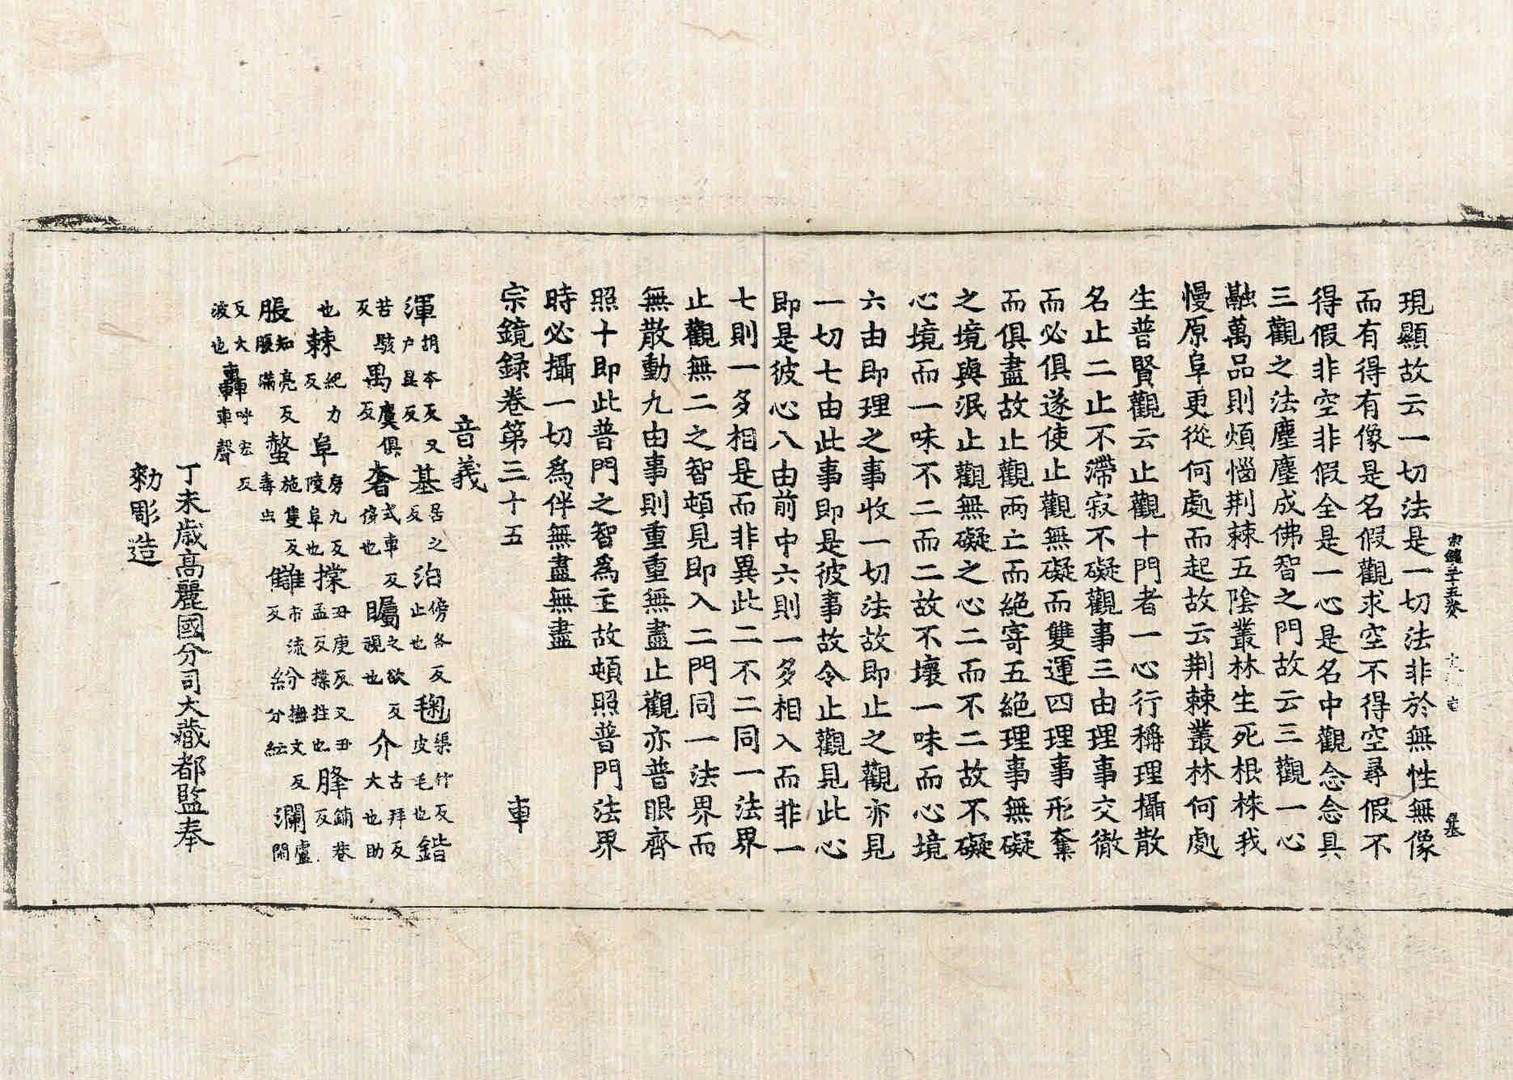 現顯故云一切法是一切法非於無性無像
而有得有像是名假觀求空不得空尋假不
得假非空非假全是一心是名中觀念念具
三觀之法塵塵成佛智之門故云三觀一心
融萬品則煩惱荆棘五陰叢林生死根株我
慢原阜更從何處而起故云荆棘叢林何處
生普賢觀云止觀十門者一心行稱理攝散
名止二止不滯寂不礙觀事三由理事交徹
而必俱遂使止觀無礙而雙運四理事形奪
而俱盡故止觀兩亡而絶寄五絶理事無礙
之境與泯止觀無礙之心二而不二故不礙
心境而一味不二而二故不壞一味而心境
六由即理之事收一切法故即止之觀亦見
一切七由此事即是彼事故令止觀見此心
即是彼心八由前中六則一多相入而非一
七則一多相是而非異此二不二同一法界
止觀無二之智頓見即入二門同一法界而
無散動九由事則重重無盡止觀亦普眼齊
照十即此普門之智爲主故頓照普門法界
時必攝一切爲伴無盡無盡
宗鏡録卷第三十五 車
音義
渾胡本反又户昆反基居之反泊傍各反止也毱渠竹反皮毛也鍇
苦駭反禺麌俱反奢式車反侈也矚之欲反視也介古拜反大也助
也棘紀力反阜房九反陵阜也㨃丑庚反又丑孟反㨃拄也胮鋪巷反
脹知亮反脹滿螫施隻反毒虫讎市流反紛撫文反紛紜瀾盧闌
反大波也轟呼宏反車聲
丁未歳高麗國分司大藏都監奉
勑彫造